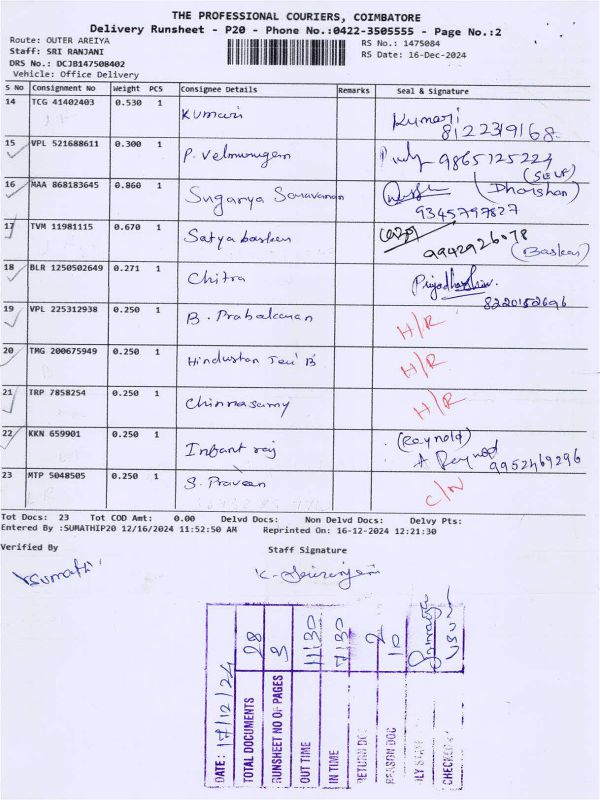 THE PROFESSIONAL COURIERS, COIMBATORE
Delivery Runsheet - P20 - Phone No.:0422-3505555 - Page No.:2
Route: OUTER AREIYA
RS No.: 1475084
Staff: SRI RANJANI
RS Date: 16-Dec-2024
DRS No.: DCJB147508402
Vehicle: Office Delivery
S No Consignment No Weight PCS Consignee Details Remarks Seal & Signature
14 TCG 41402403 0.530 1 Kumari Kumari
8122319168
15 VPL 521688611 0.300 1 P. Velmurugan 9865125224
(SELF)
16 MAA 868183645 0.860 1 Suganya Saravanan (Dharshan)
9345797827
17 TVM 11981115 0.670 1 Satyabaskan
9942926078 (Baskar)
18 BLR 1250502649 0.271 1 Chitra Priyadharshini
8220152696
19 VPL 225312938 0.250 1 B. Prabakaran H/R
20 TMG 200675949 0.250 1 Hindustan H/R
21 TRP 7858254 0.250 1 Chinnasamy H/R
22 KKN 659901 0.250 1 Infant raj (Reynold)
A Reynold 9952469296
23 MTP 5048505 0.250 1 S. Praveen C/N
Tot Docs: 23 Tot COD Amt: 0.00 Delvd Docs: Non Delvd Docs: Delvy Pts:
Entered By :SUMATHIP20 12/16/2024 11:52:50 AM Reprinted On: 16-12-2024 12:21:30
Verified By Staff Signature
Sumathi
DATE: 17/12/24
TOTAL DOCUMENTS 28
RUNSHEET NO OF PAGES 3
OUT TIME 11/30
IN TIME 7/30
RETURN DOC 2
REASON DOC 10
CHECKED